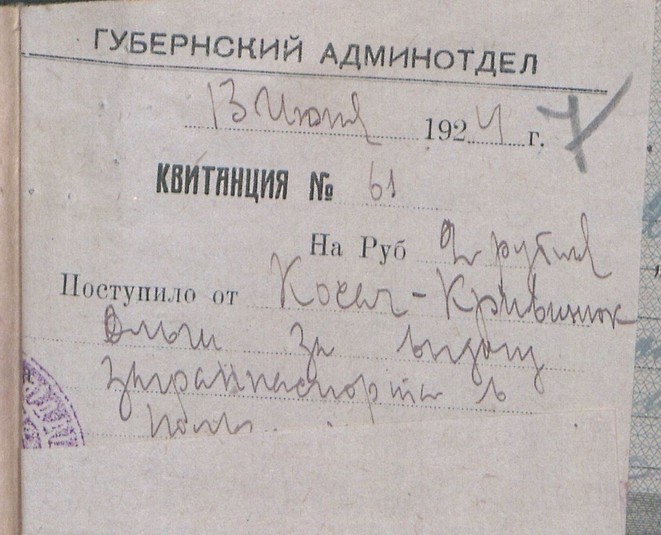 ГУБЕРНСКИЙ АДМИНОТДЕЛ
13 Июня 1924 г.
КВИТАНЦИЯ № 61
На Руб 2 рубля
Поступило от Косач-Кривинюк
Ольги за выдачу
загранпаспорта в